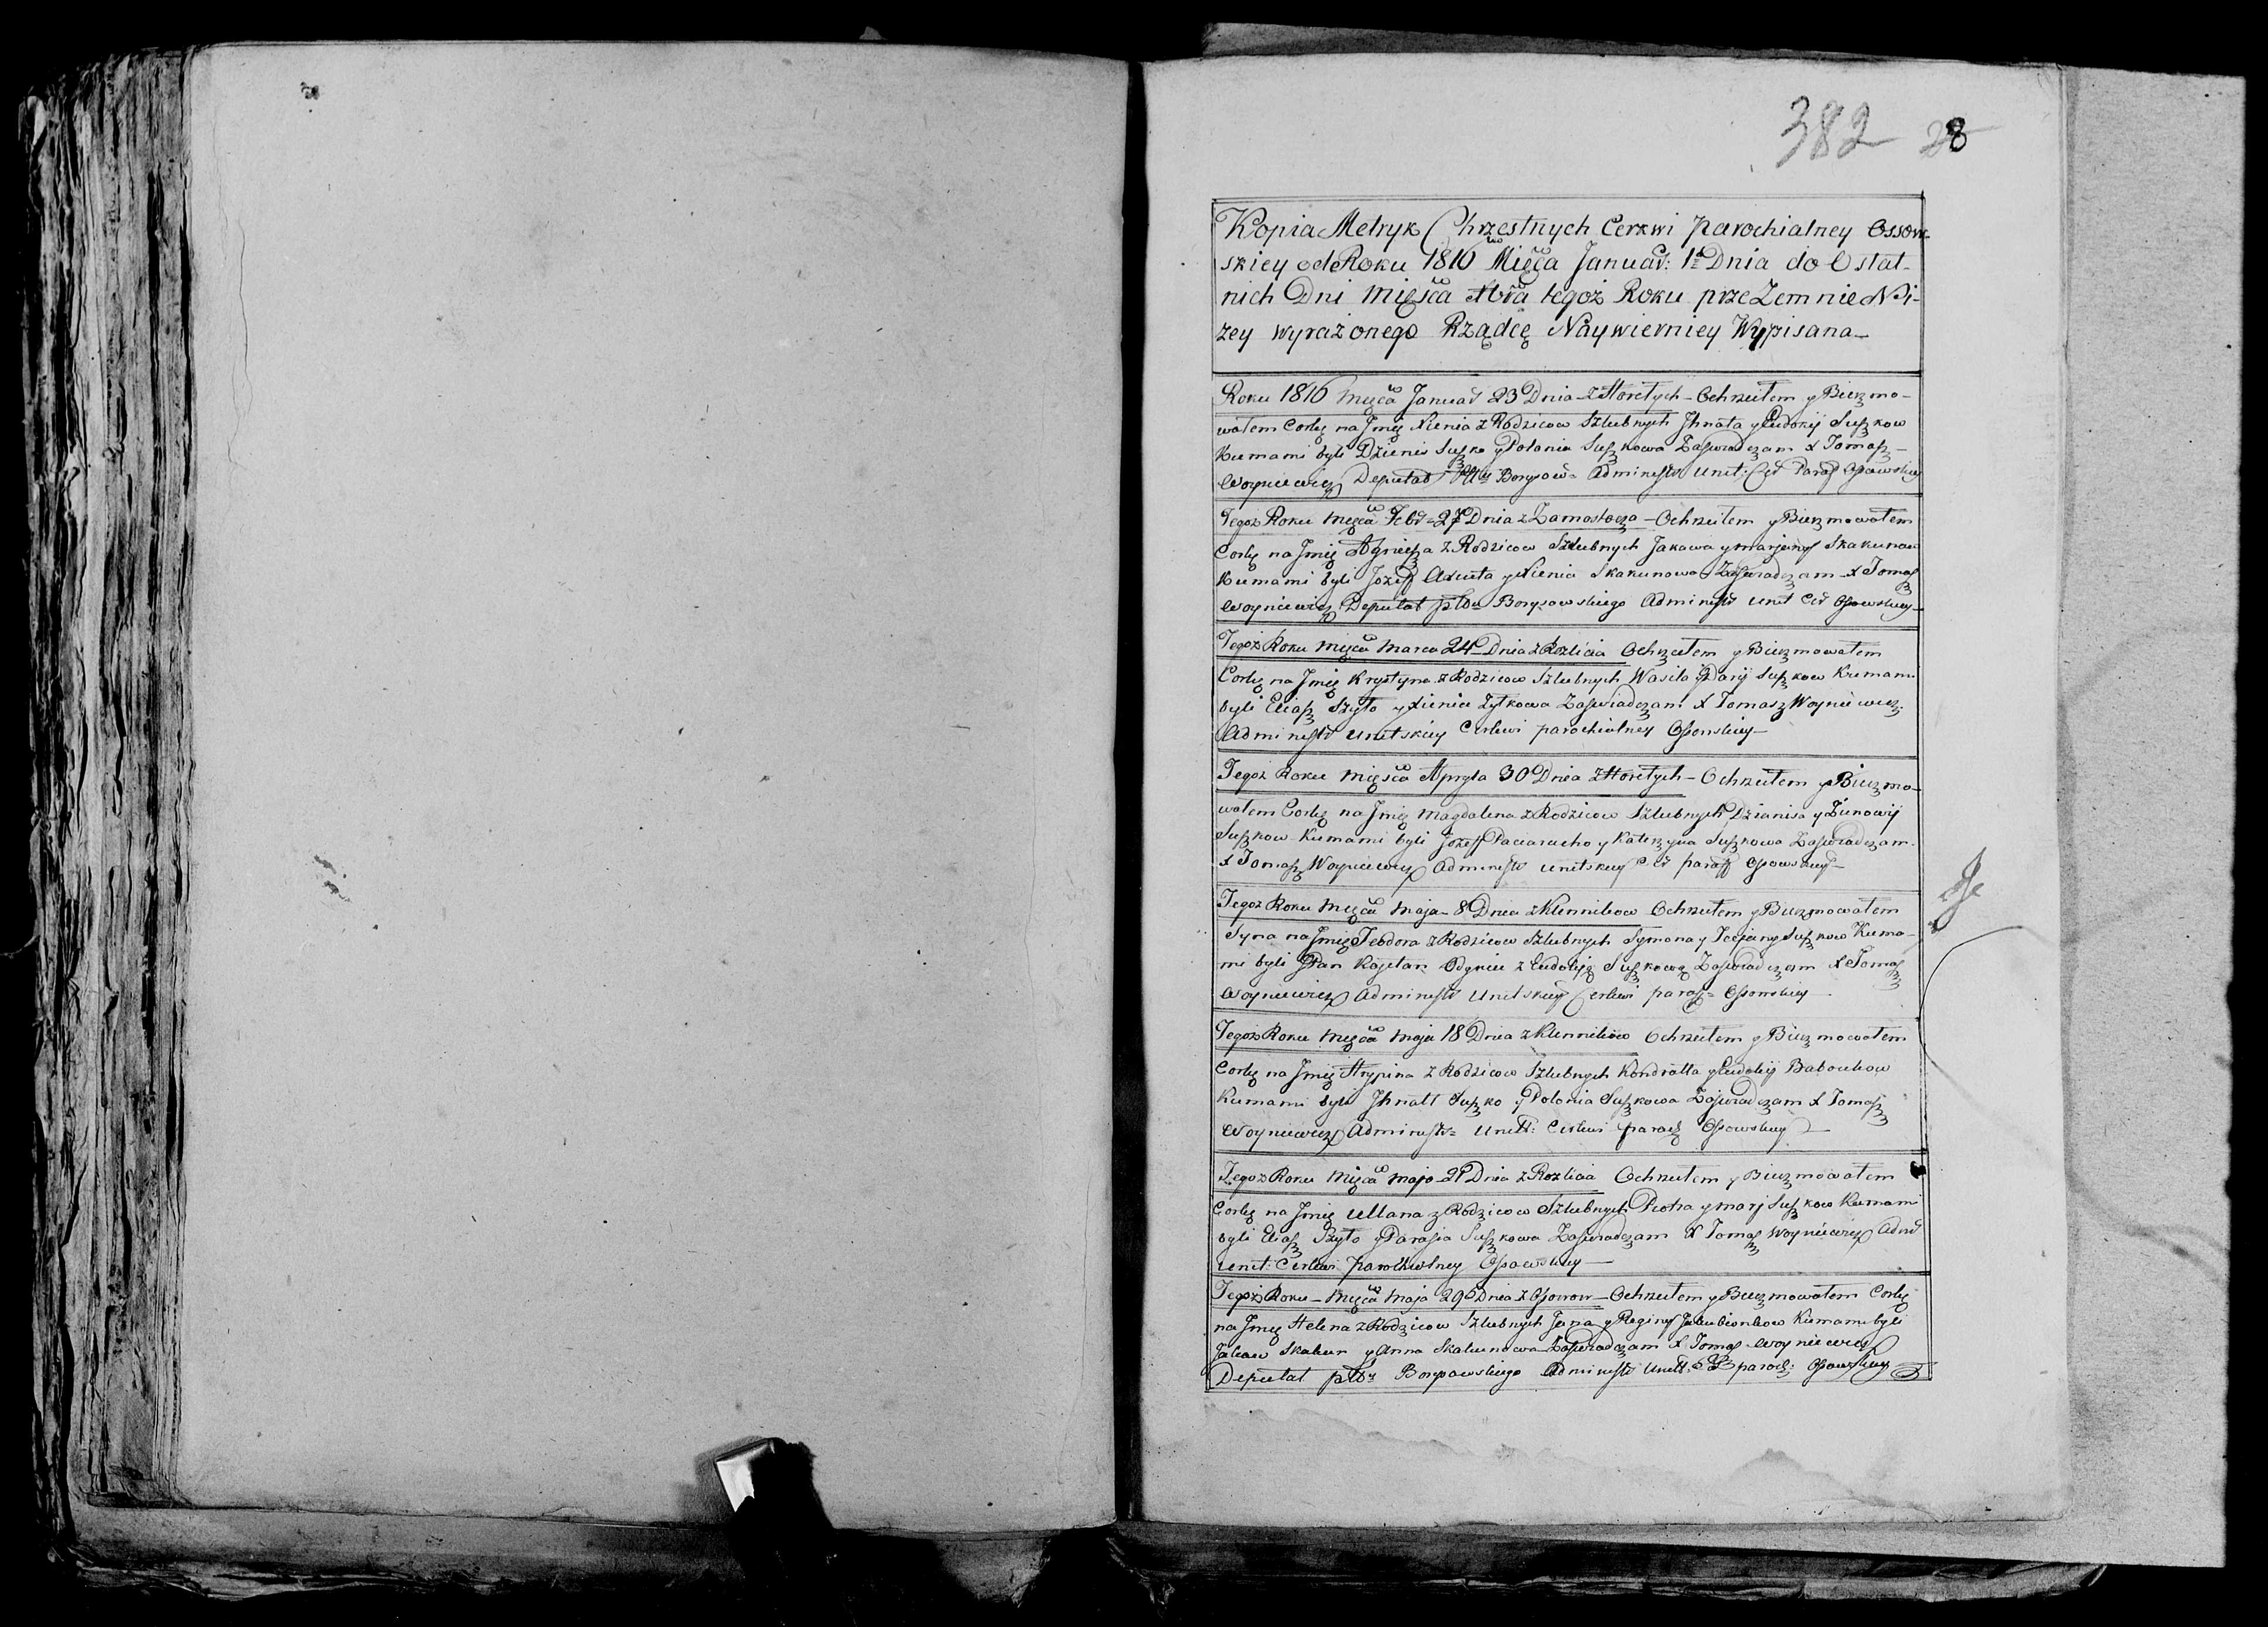 382 28
Kopia Metryk Chrzestnych Cerkwi Parochialney Ossow-
skiey od Roku 1816 Mięca Januar: 1 Dnia do Ostat-
nich Dni Mięsca tegoż Roku prze Zemnie Ni-
zey wyrażonego Rządcę Naywierniey Wypisana
Roku 1816 Mięca Januar 23 Dnia z Horełych Ochrzciłem y Bierzmo-
wałem Corkę na Jmię Xienia z Rodzicow Szlubnych Jhnata y Eudokij Suszkow
Kumami byli Dzienis Suszko y Polonia Suszkowa Zaswiadczam X Tomasz
Woyniewicz Deputat Borysow Administr Unit: Cer Paroch Ossowskiey
Tegoż Roku Mięca Febr 27 Dnia z Zamostocza Ochrzciłem y Bierzmowałem
Corkę na Jmię Agnieszka z Rodzicow Szlubnych Jakawa y Marjany Skakunow
Kumami byli Jozeff y Xienia Skakunowa Zaswiadczam X Tomasz
Woyniewicz Deputat Borysowskiego Administr Unit Cer Ossowskiey
Tegoż Roku Mięca Marca 24 Dnia z Rozlicia Ochrzciłem y Bierzmowałem
Corkę na Jmię Krystyna z Rodzicow Szlubnych Wasila y Darij Suszkow Kumami
byli Eliasz Szyło y Xienia Zytkowa Zaswiadczam X Tomasz Woyniewicz
Administr Unitskiey Cerkwi parochialney Ossowskiey
Tegoż Roku Mięsca Apryla 30 Dnia z Horełych Ochrzciłem y Bierzmo-
wałem Corkę na Jmię Magdalena z Rodzicow Szlubnych Dzianisa y Zinowij
Suszkow Kumami byli Jozeff y Katerzyna Suszkowa Zaswiadczam
X Tomasz Woyniewicz Administr Unitskiey Cer Ossowskiey
Tegoż Roku Mięca Maja 8 Dnia z Klennikow Ochrzciłem y Bierzmowałem
Syna na Jmię Teodora z Rodzicow Szlubnych Symona y Tacjany Suszkow Kuma-
mi byli Pan Kajetan z Eudokiją Suszkową Zaswiadczam X Tomasz
Woyniewicz Administr Unitskiey Cerkwi Ossowskiey
Tegoż Roku Mięca Maja 18 Dnia z Klennikow Ochrzciłem y Bierzmowałem
Corkę na Jmię z Rodzicow Szlubnych Kondratta y Eudokij Babonkow
Kumami byli Jhnatt Suszko y Polonia Suszkowa Zaswiadczam X Tomasz
Woyniewicz Administr Unitt: Cerkwi paroch Ossowskiey
Tegoż Roku Mięca Maja 21 Dnia z Rozlicia Ochrzciłem y Bierzmowałem
Corkę na Jmię Ullana z Rodzicow Szlubnych Piotra y Marj Suszkow Kumami
byli Eliasz Szyło y Parasia Suszkowa Zaswiadczam X Tomasz Woyniewicz Admr
Unit: Cerkwi Parochialney Ossowskiey
Tegoż Roku Mięca Maja 29 Dnia z Ossowow Ochrzciłem y Bierzmowałem Corkę
na Jmię Helena z Rodzicow Szlubnych Jana y Reginy Jakubionkow Kumami byli
Jakaw Skakun y Anna Skakunowa Zaswiadczam X Tomasz Woyniewicz
Deputat Borysowskiego Administr Unitt: paroch: Ossowskiey